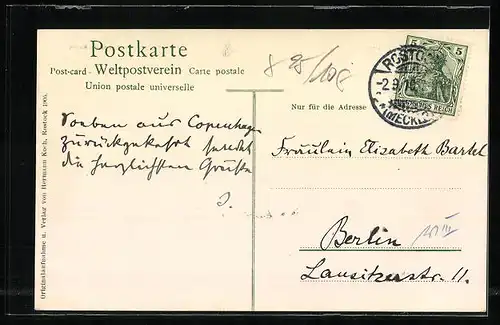 Postkarte
Post-card - Weltpostverein Carte postale
Union postale universelle
Nur für die Adresse
5 5
ROSTOCK
-2.9.
(MECKLB)
DEUTSCHES REICH
Soeben aus Copenhagen
zurückgekehrt sendet
die herzlichsten Grüße
J.
Fräulein Elisabeth Bartel
Berlin
Lausitzerstr. 11.
Originalaufnahme u. Verlag von Hermann Koch, Rostock